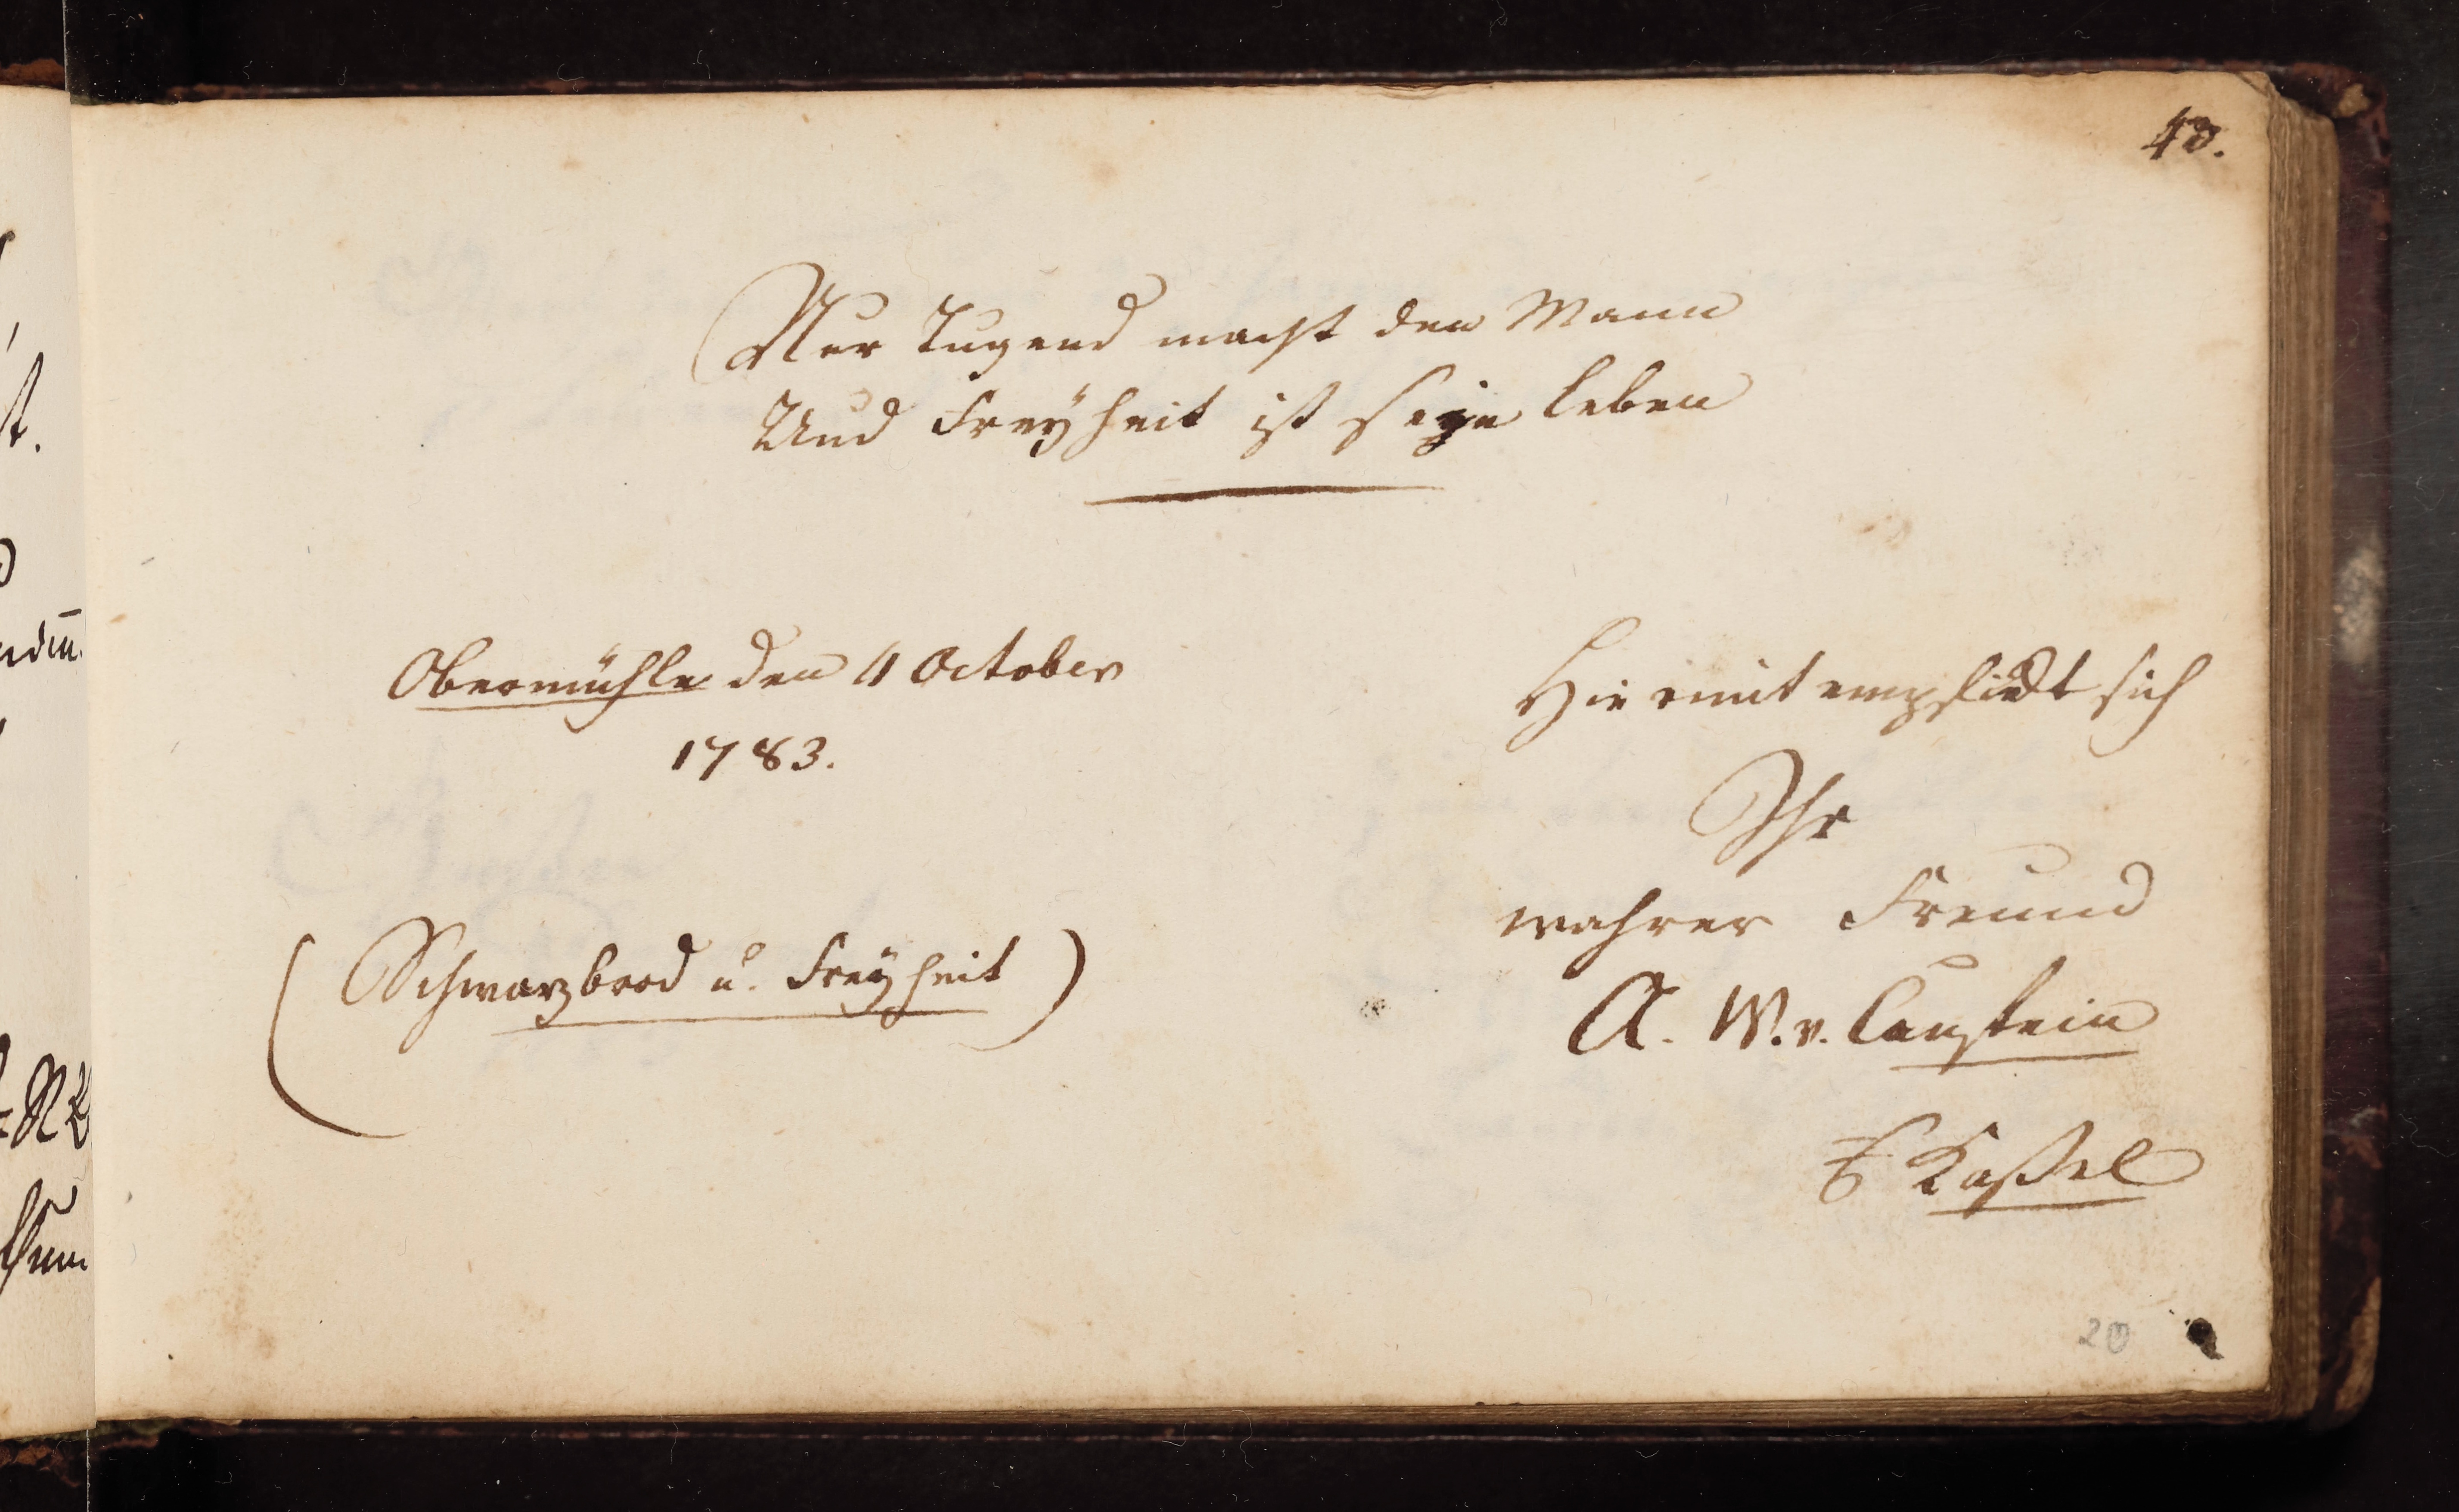 43.
Nur Tugend macht den Mann
Und Freyheit ist sein leben
Obermühle den 11 October
1783.
(Schwarzbrod u. Freyheit)
Hiermit empfielt sich
Ihr
wahrer Freund
A. W. v. Canstein
Kaßel
20